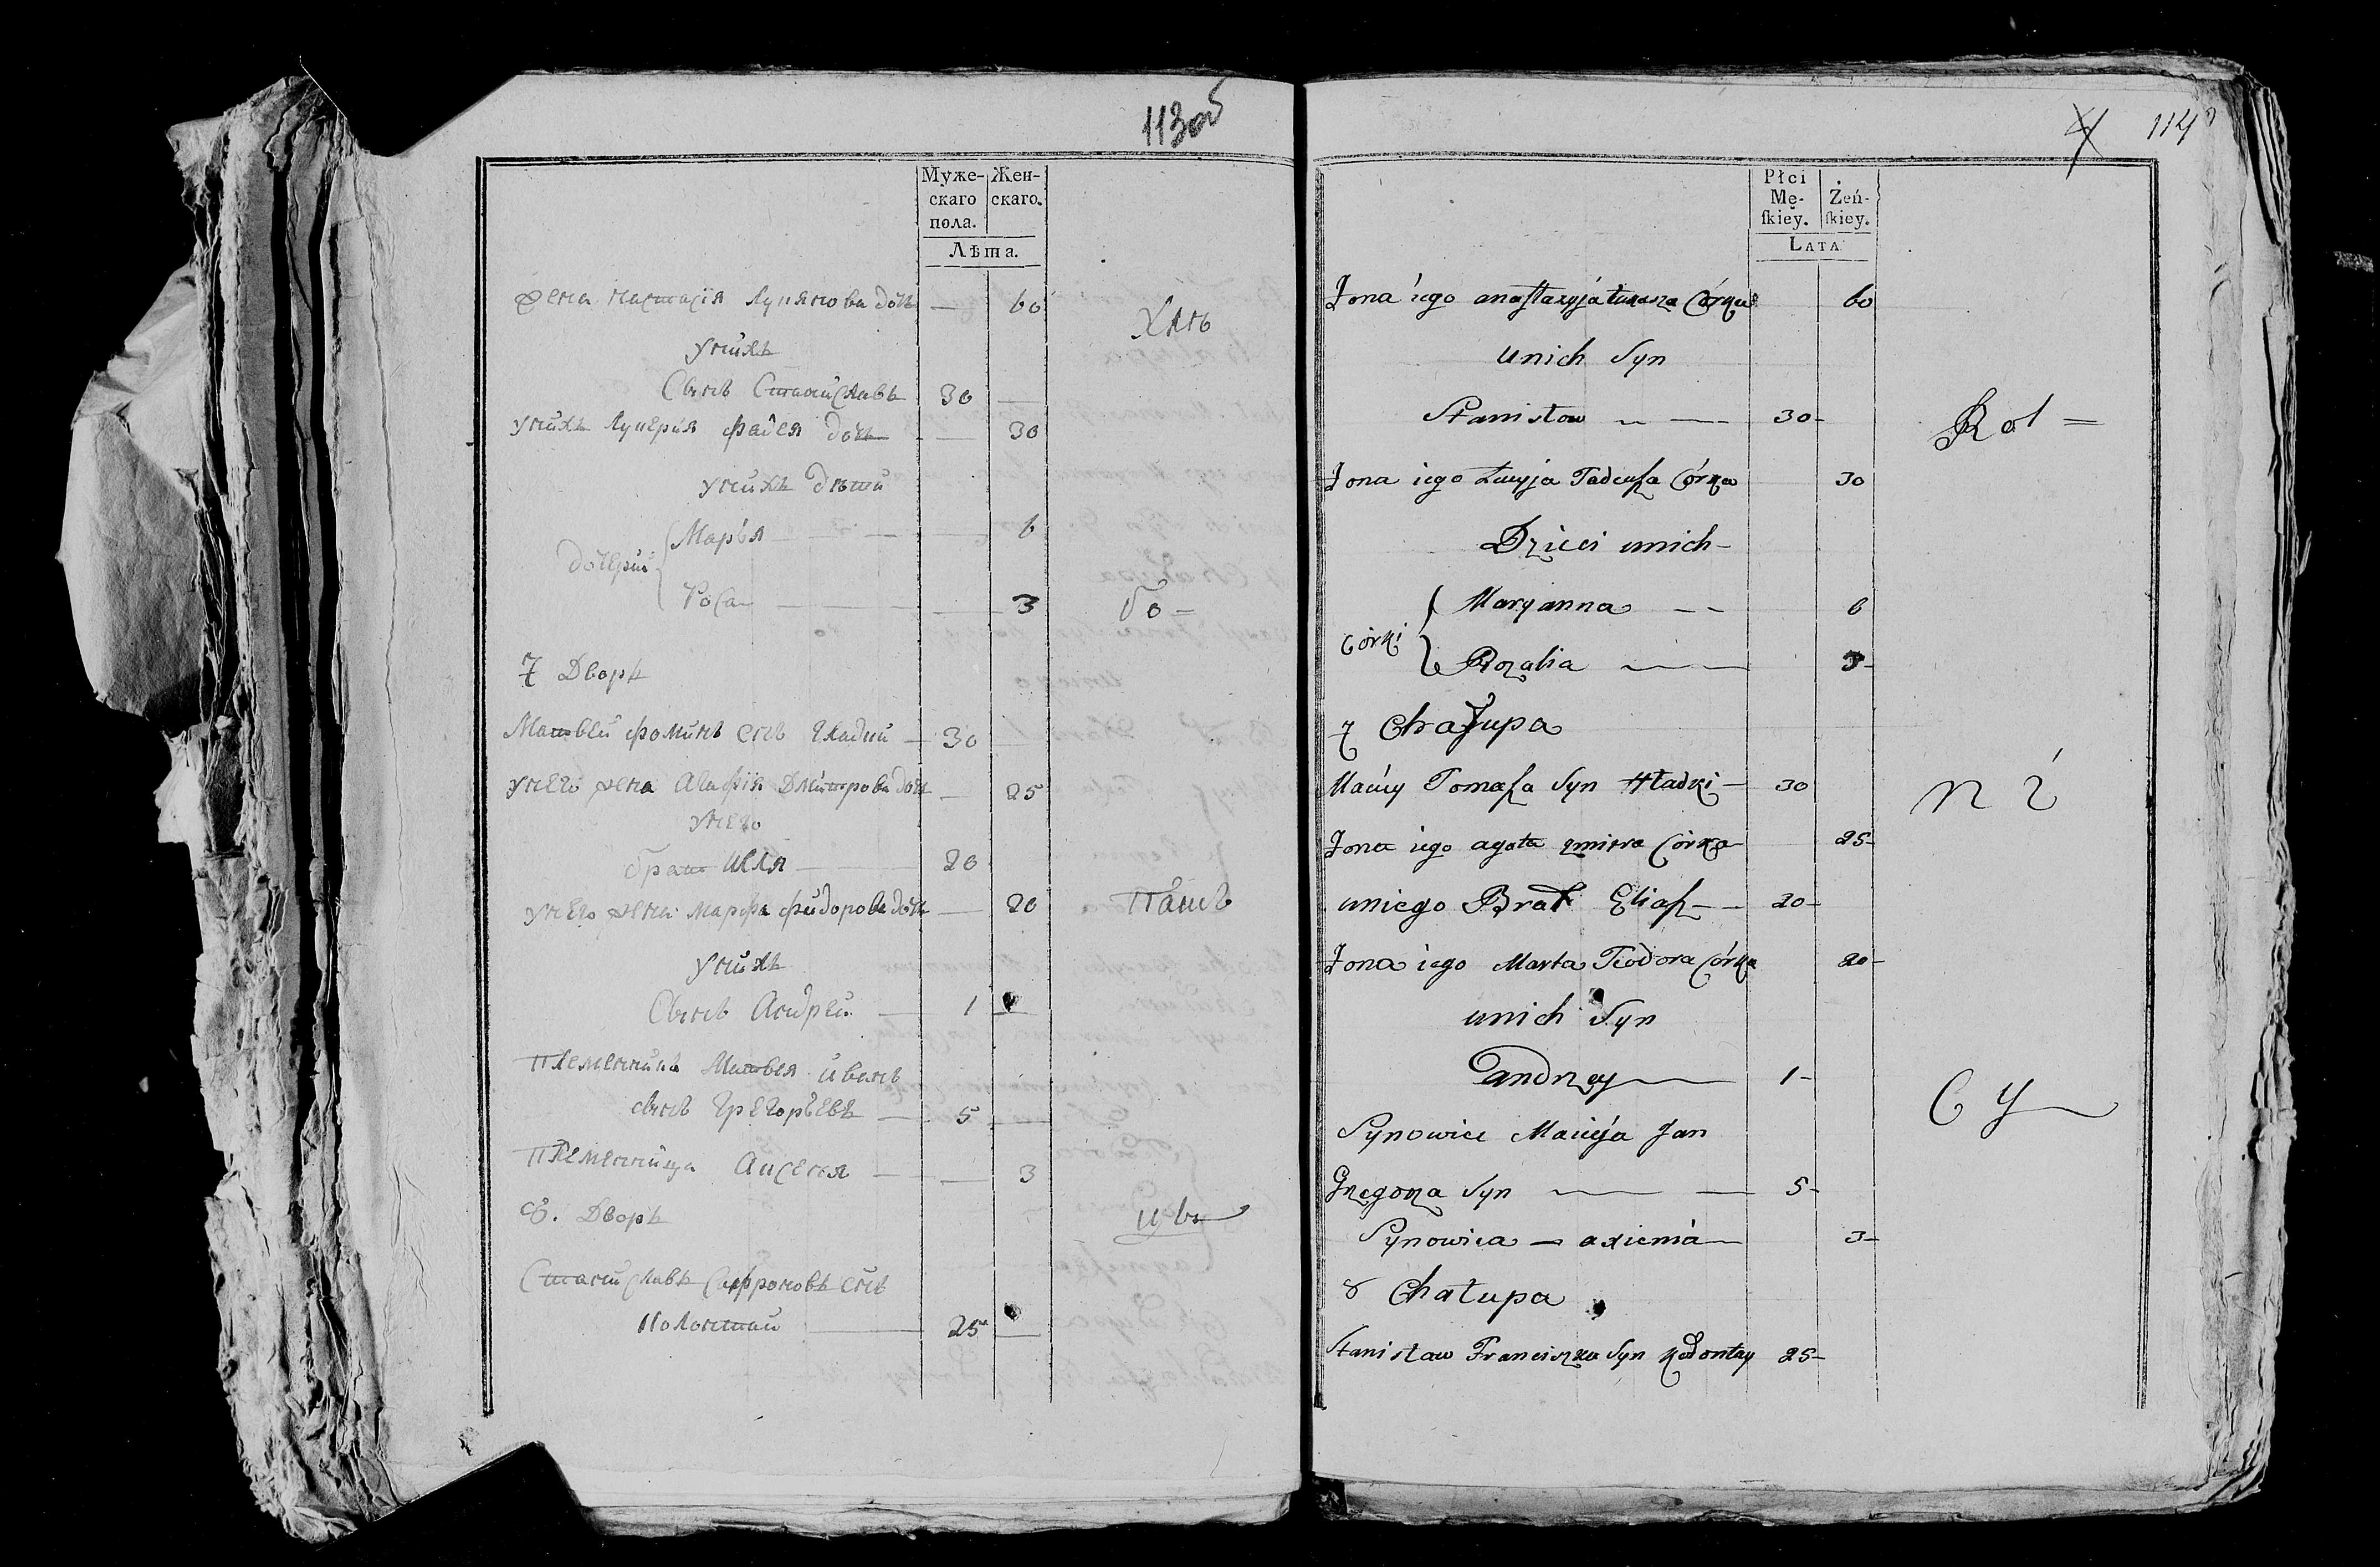 113об
Муже-
скаго
пола.
Жен-
скаго.
Лѣта.
жена Настасія Лукянова дочь — 60
Хлѣ
у нихъ
Сынъ Станиславъ 30 —
у нихъ Лукерия Фадея дочь — 30
у нихъ дѣти
Марья — 6
дочери
Роса — 3
бо —
7 Дворъ
Матвей Фоминъ снъ Гладкий — 30
у него жена Агафія Дмитрова дочь — 25
у него
братъ Илля — 20
у него жена Марфа Фиодорова дочь — 20
Пашъ
у нихъ
Сынъ Андрей — 1
племенникъ Матвея Иванъ
сынъ Грегорьевъ — 5
племенница Аксеня — 3
8. Дворъ
цы
Станиславъ снъ
Колонтай — 25
4 114
Płci
Mę-
ſkiey.
Żeń-
ſkiey.
LATA
Zona iego anaſtazyja Łukasza Córka 60
unich Syn
Stanisław — 30 —
Rol =
Zona iego Łucyja Tadeuſza Córka 30
Dzieci unich —
Maryanna — — 6
Córki
Rozalia — 3 —
7 Chałupa
Maciey Tomaſza Syn Hładki — 30
ni
Zona iego agata zmitra Córka 25 —
uniego Brat Eliaſz — 20 —
Zona iego Marta Teodora Córka 20 —
unich Syn
andrzey — 1 —
cy —
Synowiec Macieja Jan
Grzegorza Syn — — 5 —
Synowica — axienia — 3 —
8 Chałupa
Stanisław Franciszka Syn Kołontay 25 —